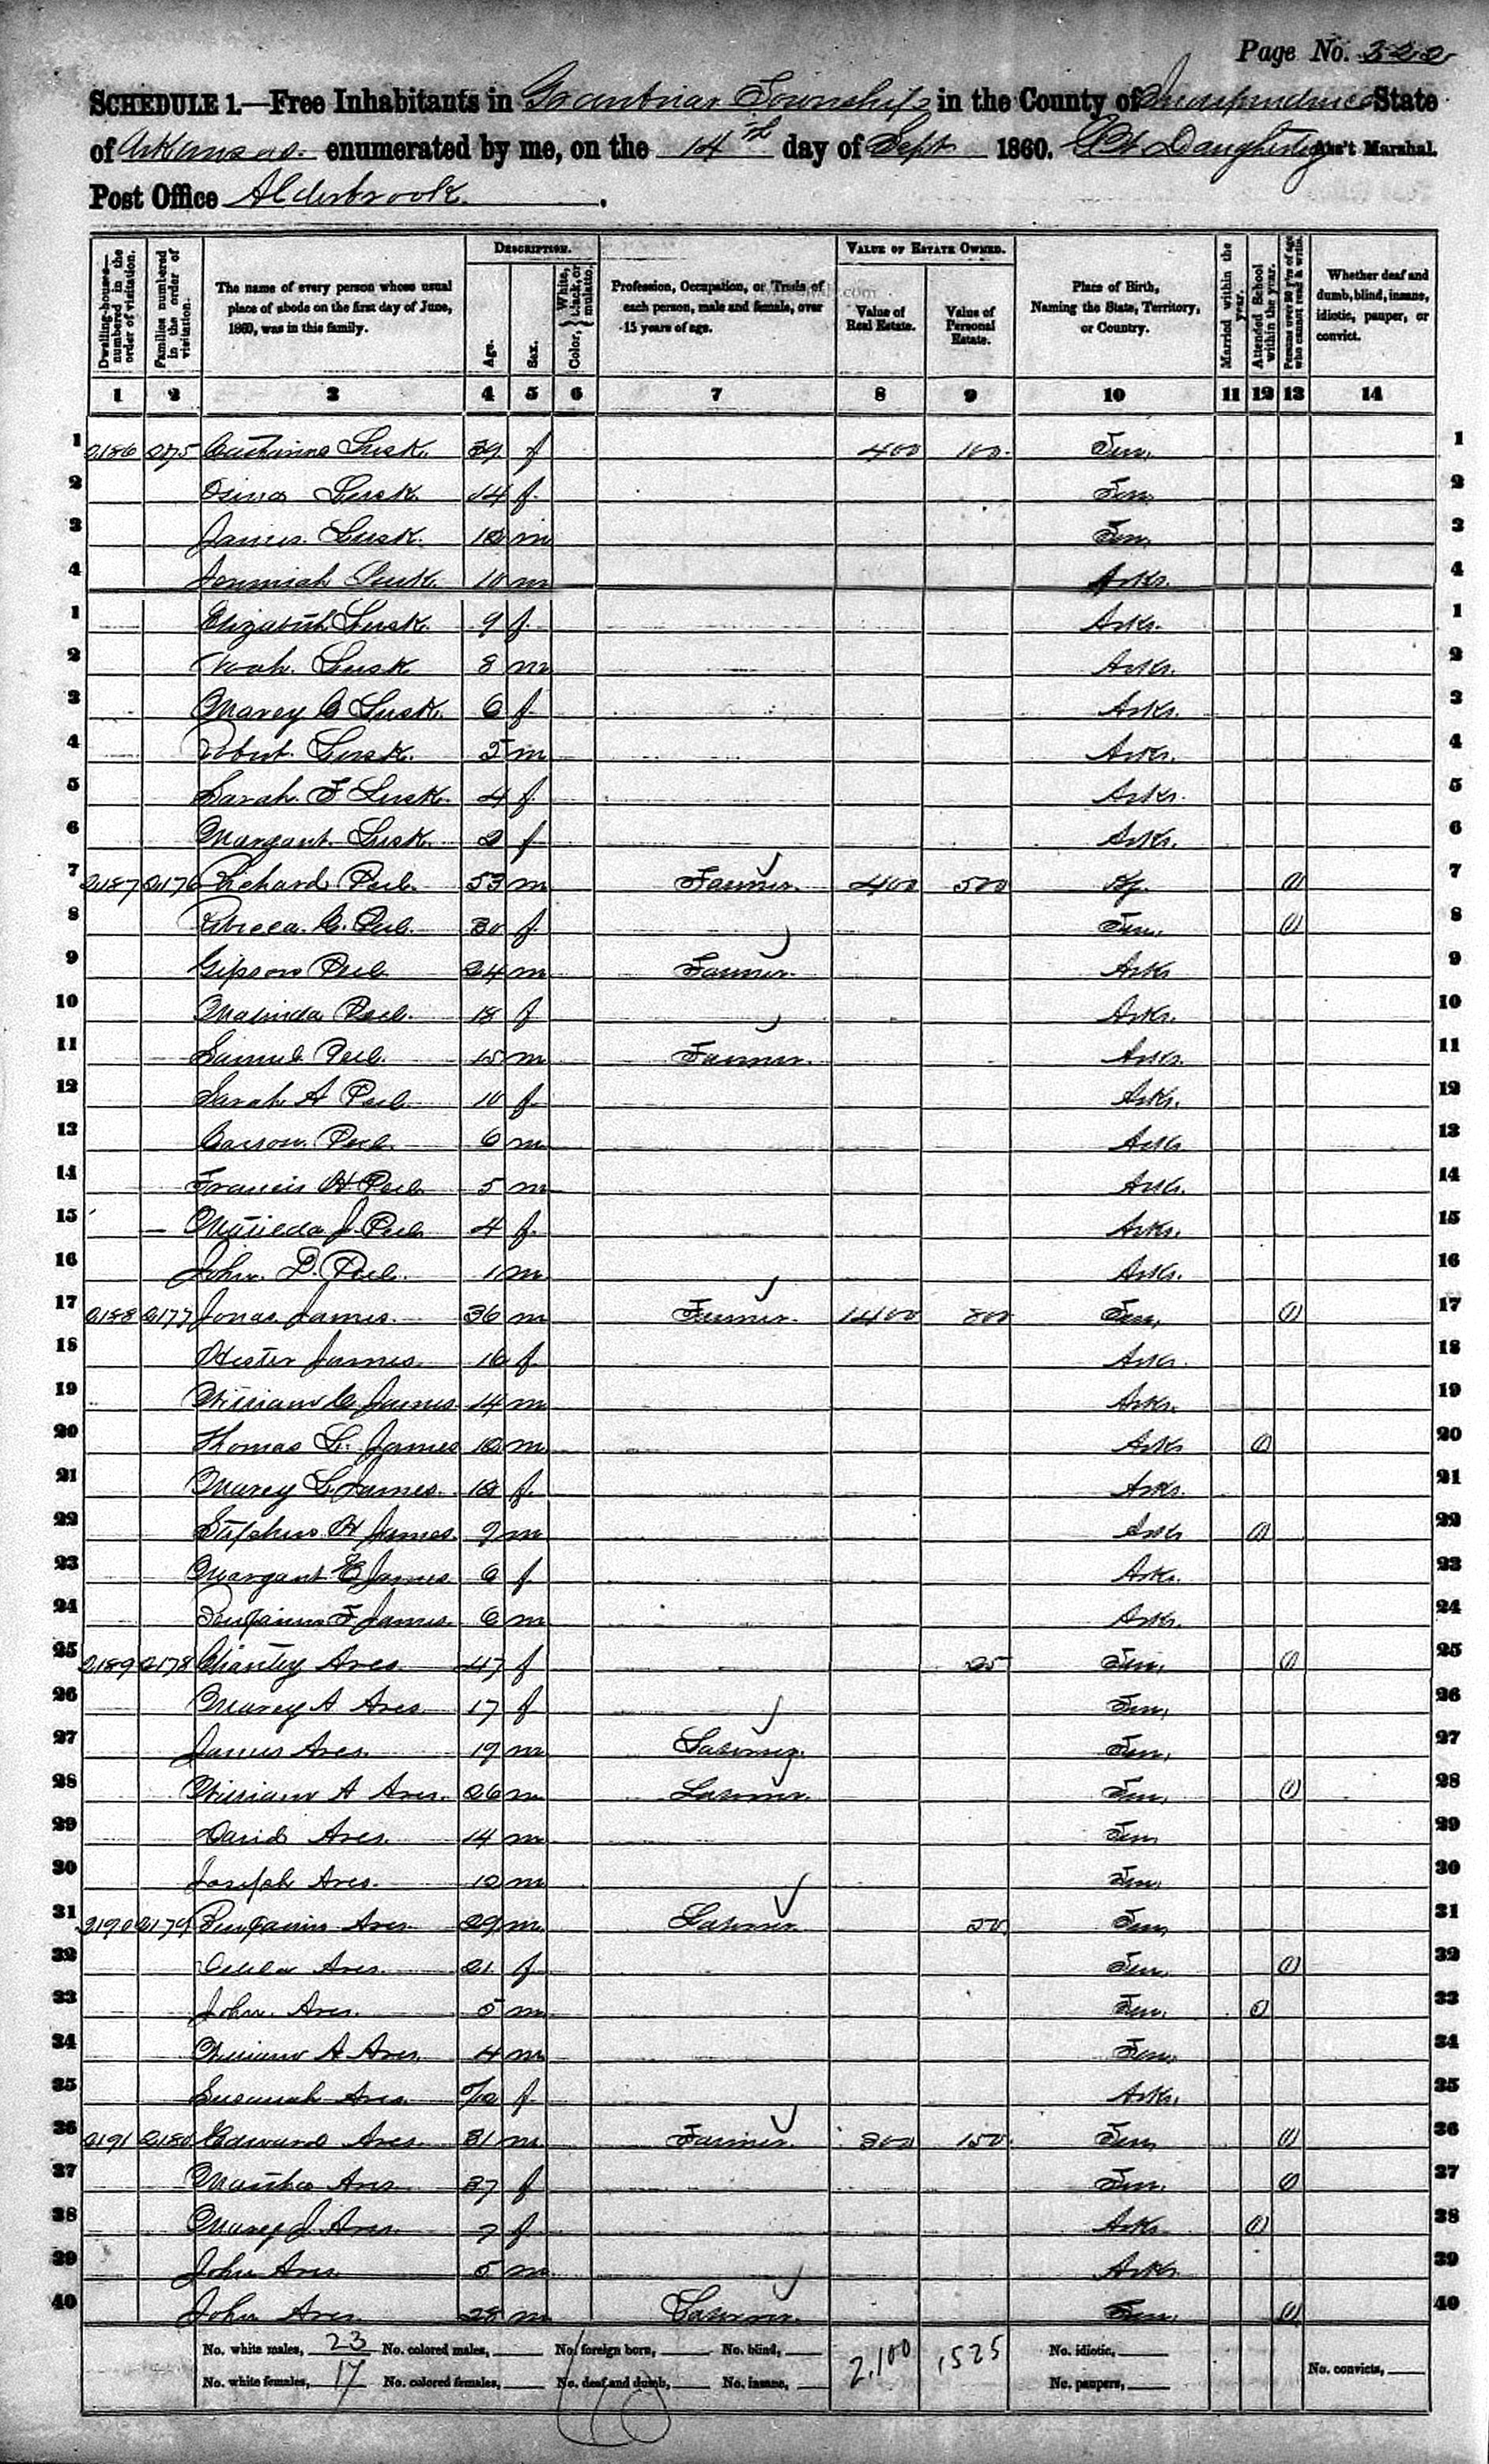 Page No. 322
SCHEDULE 1.—Free Inhabitants in Township in the County of Independence State
of Arkansas enumerated by me, on the 14th day of Sept 1860. Daugherty Ass't Marshal.
Post Office Alderbrook.
Dwelling-houses—numbered in the order of visitation.
Families numbered in the order of visitation.
The name of every person whose usual place of abode on the first day of June, 1860, was in this family.
DESCRIPTION.
Age.
Sex.
Color, { White, black, or mulatto.
Profession, Occupation, or Trade of each person, male and female, over 15 years of age.
VALUE OF ESTATE OWNED.
Value of Real Estate.
Value of Personal Estate.
Place of Birth, Naming the State, Territory, or Country.
Married within the year.
Attended School within the year.
Persons over 20 y'rs of age who cannot read & write.
Whether deaf and dumb, blind, insane, idiotic, pauper, or convict.
1 2 3 4 5 6 7 8 9 10 11 12 13 14
1 2186 Lusk 39 f 400 100 Ten. 1
2 Lusk 14 f Ten 2
3 James Lusk 12 m Ten. 3
4 Jeremiah Lusk 10 m Arks. 4
1 Elizabeth Lusk 9 f Arks. 1
2 Noah Lusk 8 m Arks. 2
3 Marey C Lusk 6 f Arks. 3
4 Robert Lusk 5 m Arks. 4
5 Sarah F Lusk 4 f Arks. 5
6 Margaret Lusk 2 f Arks. 6
7 2187 2176 Richard Peel 53 m Farmer 400 500 Ky. 1 7
8 Rebecca C. Peel 30 f Ten. 1 8
9 Gipson Peel 24 m Farmer Arks 9
10 Malinda Peel 18 f Arks. 10
11 Samuel Peel 15 m Farmer Arks. 11
12 Sarah A Peel 10 f Arks. 12
13 Carson Peel 6 m Arks. 13
14 Francis H Peel 5 m Arks. 14
15 Matilda J. Peel 4 f Arks. 15
16 John D. Peel 1 m Arks. 16
17 2188 2177 Jonas James 36 m Farmer 1400 800 Ten. 1 17
18 Hester James 16 f Arks. 18
19 William C James 14 m Arks. 19
20 Thomas L. James 12 m Arks 1 20
21 Marey L James f Arks. 21
22 Stephen H James 9 m Arks 1 22
23 Margaret E James 6 f Arks. 23
24 Benjamin F James 6 m Arks. 24
25 2189 2178 Aves 47 f 25 Ten. 1 25
26 Marey A Aves 17 f Ten. 26
27 James Aves 19 m Laborer Ten. 27
28 William A Aves 26 m Laborer Ten. 1 28
29 David Aves 14 m Ten 29
30 Joseph Aves 12 m Ten. 30
31 2190 2179 Benjamin Aves 29 m Laborer 50 Ten 31
32 Aves 21 f Ten. 1 32
33 John Aves 5 m Ten. 1 33
34 William A Aves 4 m Ten. 34
35 Susanah Aves f Arks. 35
36 2191 2180 Edward Aves 31 m Farmer 300 150 Ten 1 36
37 Martha Aves 37 f Ten. 1 37
38 Marey J Aves 7 f Arks 1 38
39 John Aves 5 m Arks 39
40 John Aves 28 m Laborer Ten. 1 40
No. white males, 23 No. colored males, No. foreign born, No. blind, 2,100 1525 No. idiotic,
No. white females, 17 No. colored females, No. deaf and dumb, No. insane, No. paupers, No. convicts,